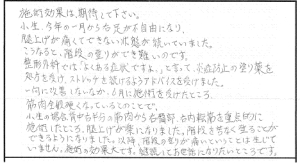 施術効果は、期待して下さい。
小生、今年の一月から右足が不自由になり、
腿上げが痛くてできない状態が続いていました。
こうなると、階段の登りができ難いのです。
整形外科では「よくある症状ですよ。」と言って、炎症防止の塗り薬を
処方を受け、ストレッチを続けるようアドバイスを受けました。
一向に改善しないなか、6月に施術を受けたところ、
筋肉全般硬くなっているとのことで、
小生の場合背中右下りの筋肉から右臀部、右内転筋を重点的に
施術したところ、腿上げが楽になりました。階段を恐なく登ることが
できるようになりました。以降、階段の登りが痛いということは生じて
いません。施術の効果大です。継続してお世話になりたいところです。